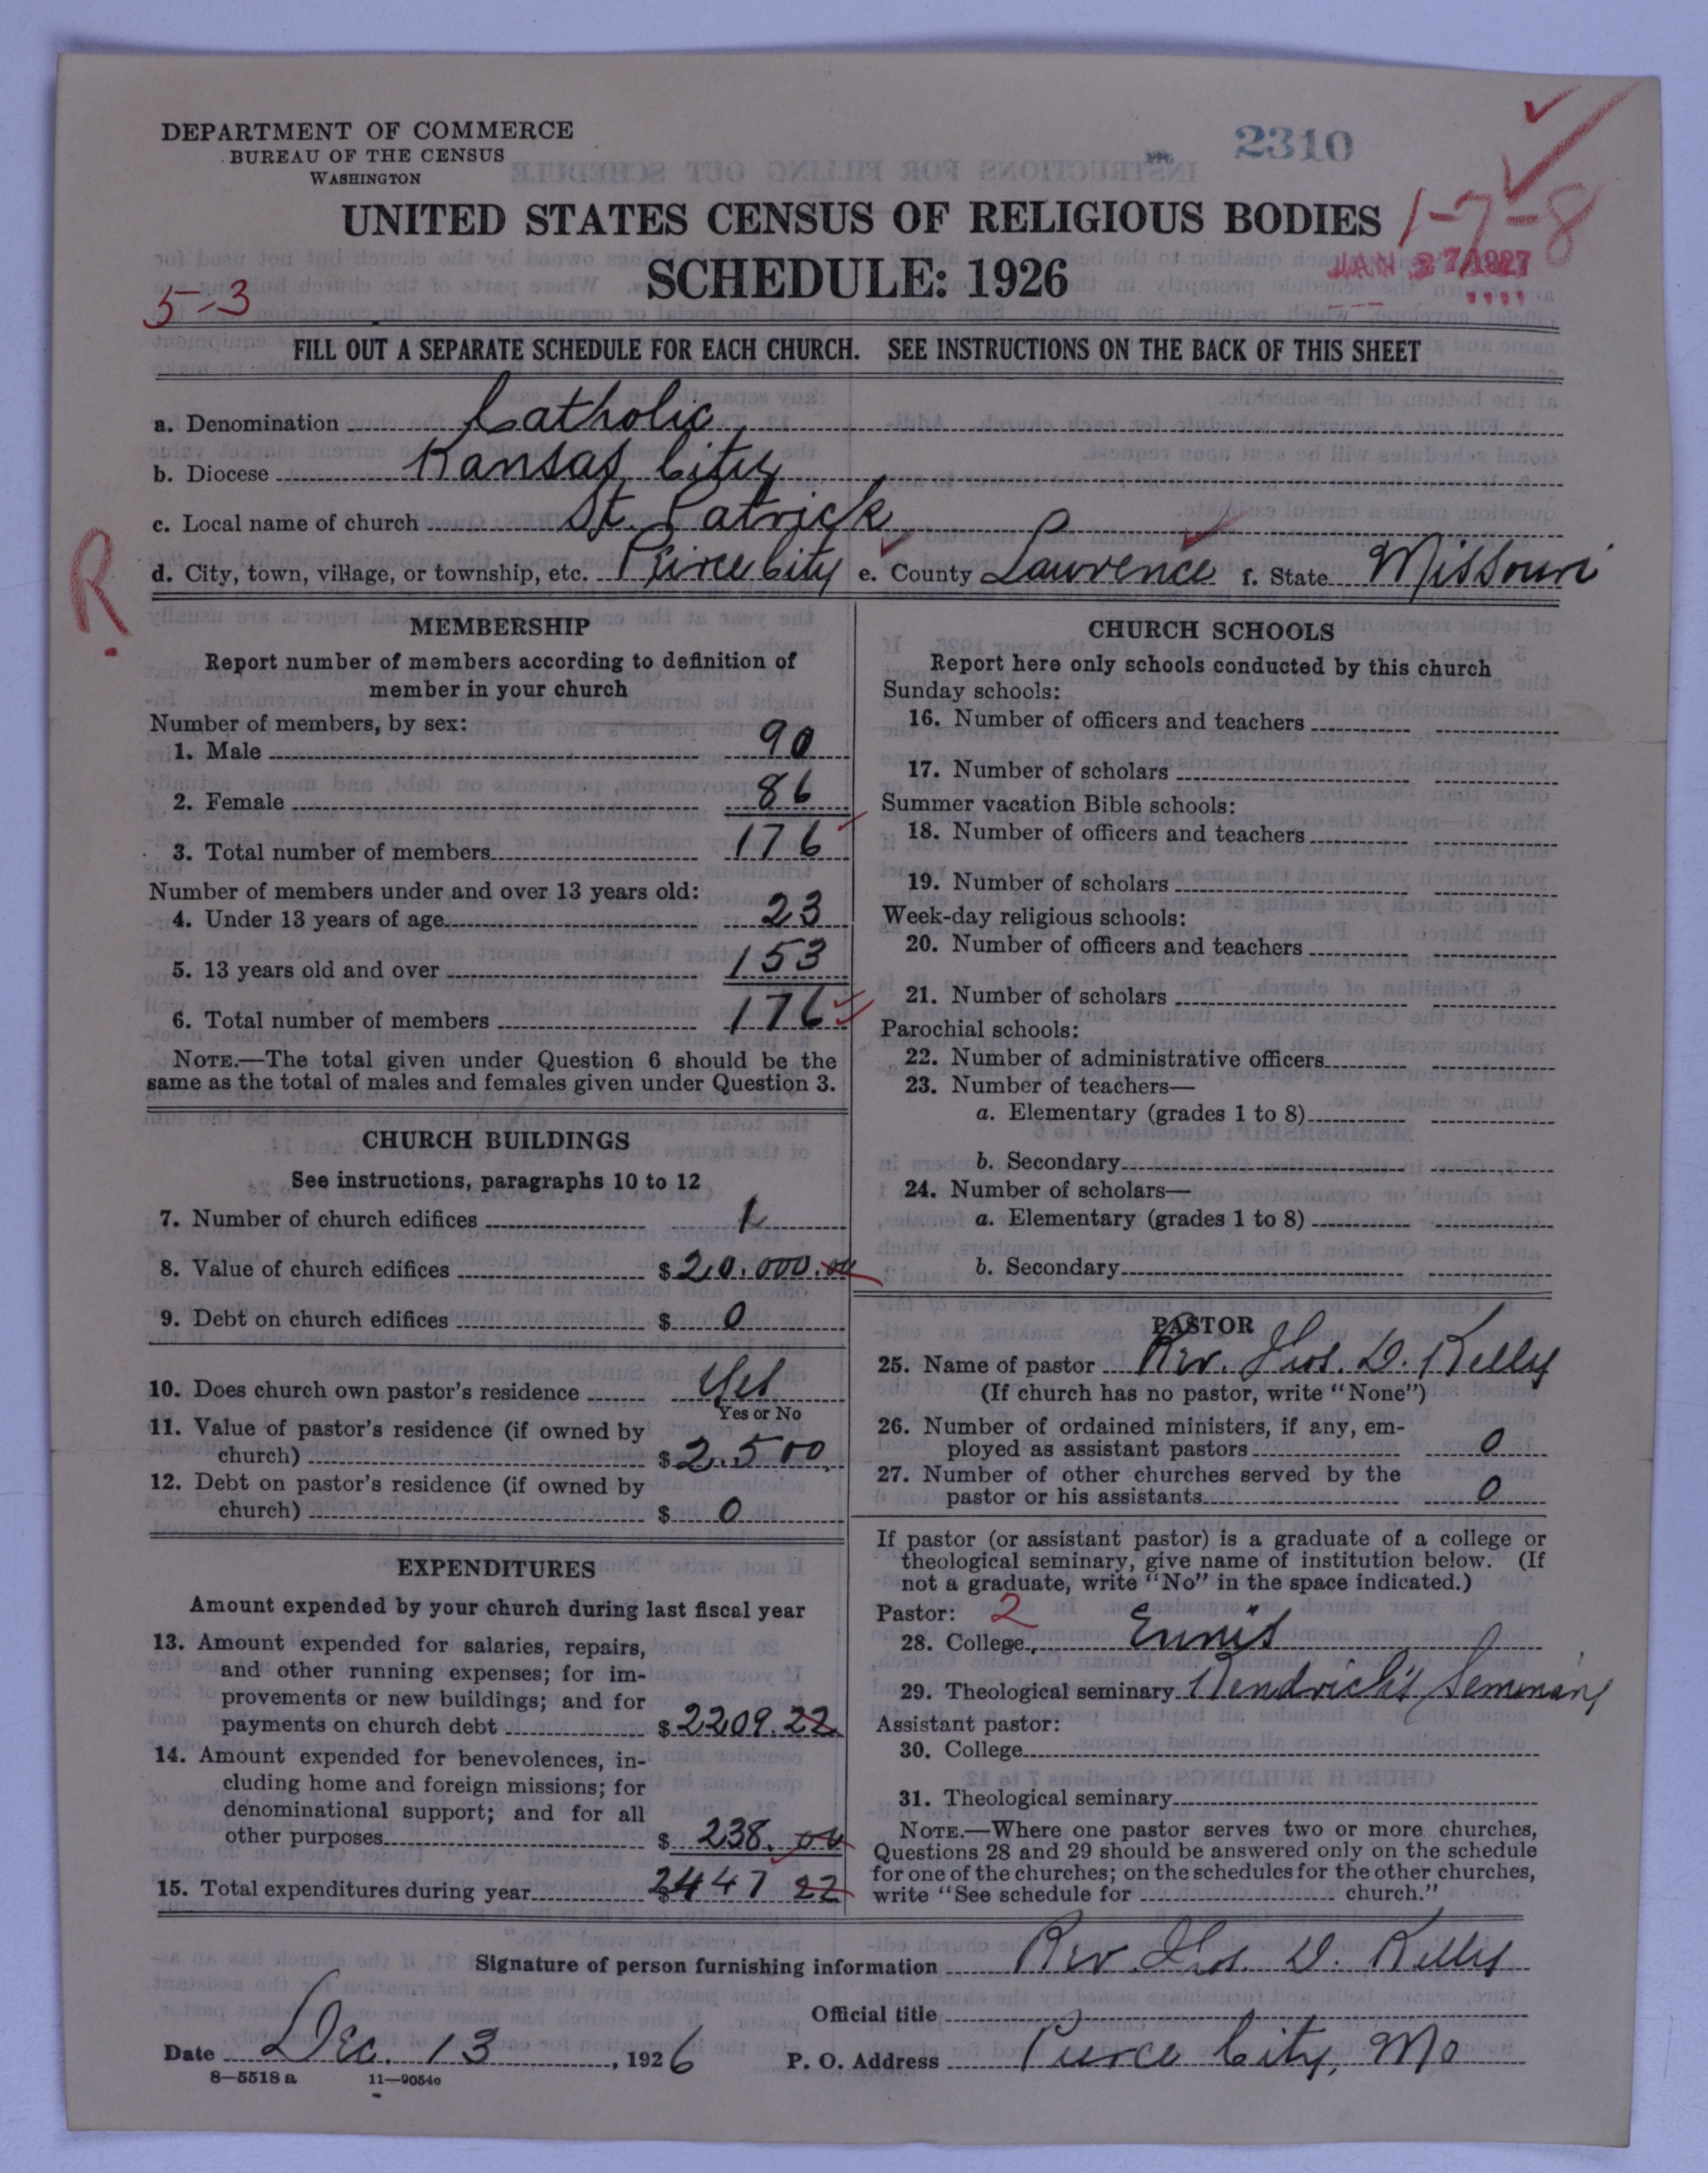 DEPARTMENT OF COMMERCE
BUREAU OF THE CENSUS
WASHINGTON
2310
UNITED STATES CENSUS OF RELIGIOUS BODIES
1-7-8
SCHEDULE: 1926
JAN 27 1927
5-3
FILL OUT A SEPARATE SCHEDULE FOR EACH CHURCH. SEE INSTRUCTIONS ON THE BACK OF THIS SHEET
a. Denomination Catholic
b. Diocese Kansas City
c. Local name of church St. Patrick
d. City, town, village, or township, etc. Peirce City e. County Lawrence f. State Missouri
R.
MEMBERSHIP
Report number of members according to definition of
member in your church
Number of members, by sex:
1. Male 90
2. Female 86
3. Total number of members 176
Number of members under and over 13 years old:
4. Under 13 years of age 23
5. 13 years old and over 153
6. Total number of members 176
NOTE.—The total given under Question 6 should be the
same as the total of males and females given under Question 3.
CHURCH BUILDINGS
See instructions, paragraphs 10 to 12
7. Number of church edifices 1
8. Value of church edifices $20.000.00
9. Debt on church edifices $ 0
10. Does church own pastor's residence Yes
Yes or No
11. Value of pastor's residence (if owned by
church) $2.500
12. Debt on pastor's residence (if owned by
church) $ 0
EXPENDITURES
Amount expended by your church during last fiscal year
13. Amount expended for salaries, repairs,
and other running expenses; for im-
provements or new buildings; and for
payments on church debt $2209.22
14. Amount expended for benevolences, in-
cluding home and foreign missions; for
denominational support; and for all
other purposes $ 238.00
15. Total expenditures during year $2447 22
CHURCH SCHOOLS
Report here only schools conducted by this church
Sunday schools:
16. Number of officers and teachers
17. Number of scholars
Summer vacation Bible schools:
18. Number of officers and teachers
19. Number of scholars
Week-day religious schools:
20. Number of officers and teachers
21. Number of scholars
Parochial schools:
22. Number of administrative officers
23. Number of teachers—
a. Elementary (grades 1 to 8)
b. Secondary
24. Number of scholars—
a. Elementary (grades 1 to 8)
b. Secondary
PASTOR
25. Name of pastor Rev. Thos. D. Kelly
(If church has no pastor, write "None")
26. Number of ordained ministers, if any, em-
ployed as assistant pastors 0
27. Number of other churches served by the
pastor or his assistants 0
If pastor (or assistant pastor) is a graduate of a college or
theological seminary, give name of institution below. (If
not a graduate, write "No" in the space indicated.)
Pastor: 2
28. College Ennis
29. Theological seminary Kendrick's Seminary
Assistant pastor:
30. College
31. Theological seminary
NOTE.—Where one pastor serves two or more churches,
Questions 28 and 29 should be answered only on the schedule
for one of the churches; on the schedules for the other churches,
write "See schedule for church."
Signature of person furnishing information Rev. Thos. D. Kelly
Official title
Date Dec. 13, 1926 P. O. Address Pierce City, Mo
8—5518 a 11—9054c